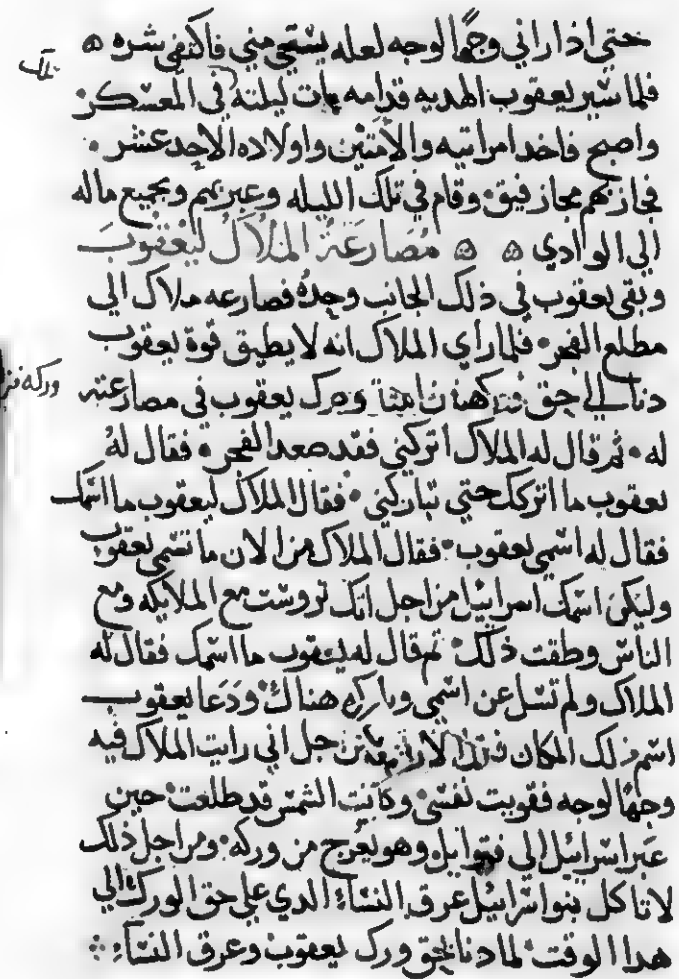 حتي اذا راني وجهًا لوجه لعله يستحي مني فاكتفي شره ۵
تلك
فلما سير يعقوب الهديه قدامه بات ليلته في المعسكر·
واصبح فاخد امراتيه والامتين واولاده الاحد عشر ·
فجاز بهم مجاز فيق· وقام في تلك الليله وعبر بهم وبجميع ماله
الي الوادي ۵ ۵ مُصَارعَةُ المَلَاكُ ليَعْقوبَ
وبقي يعقوب في ذلك الجانب وحدهُ فصارعه ملاك الي
مطلع الفجر· فلما راي الملاك انه لا يطيق قوة يعقوب
دنا الي حق ورك يعقوب في مصارعته
وركه
له· ثم قال له الملاك اتركني فقد صعد الفجر· فقال لهُ
يعقوب ما اتركك حتي تباركني· فقال الملاك ليعقوب ما اسمك
فقال له اسمي يعقوب· فقال الملاك من الان ما تسمي يعقوب
وليكن اسمك اسراييل من اجل انك تروست مع الملايكه ومع
الناس وطقت ذلك· ثم قال له يعقوب ما اسمك فقال له
الملاك ولم تسل عن اسمي وباركه هناك· ودَعَا يعقوب
اسم ذلك المكان من اجل اني رايت الملاك فيه
وجهًا لوجه فقويت نفسي· وكانت الشمس قد طلعت· حين
عَبر اسراييل الي فنوايل وهو يعرج من وركه· ومن اجل ذلك
لا تاكل بنوا سراييل عرق النساء الدي علي حق الورك الي
هدا الوقت· لما دنا بحق ورك يعقوب وعرق النساء ·:·